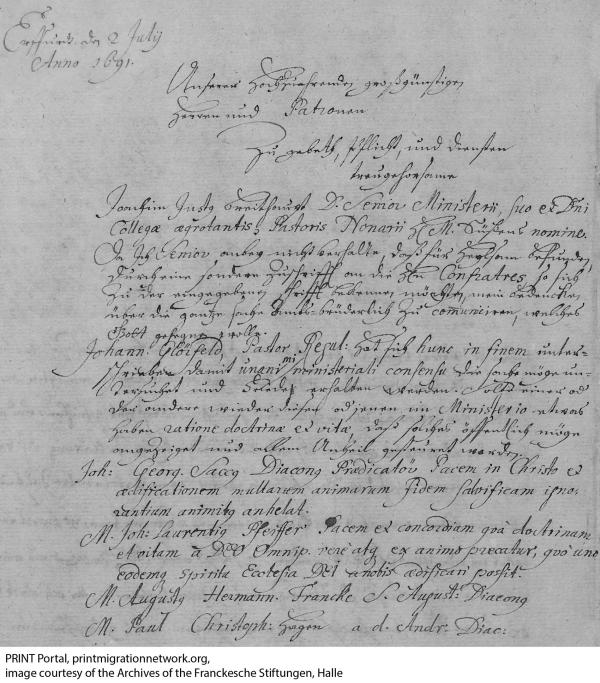 Erffurt den 2 July
Anno 1691.
Unseren Hochzuehrenden großgünstigen
Herren und Patronen
Zu gebeth, Pflicht, und diensten
treugehorsame
Joachim Justg Breithaupt D. Senior Ministerii, suo et Dni
Collegæ ægrotantis, Pastoris Nonarii H. M. nomine.
Senior anbey nicht verhalte, daß für befunden,
durch eine sondere Zuschrifft an die Hn Confratres, so sich
zu der eingegebenen Schrifft bekennen möchten, mein bedencken
über die gantze sache Ambts-brüderlich zu communiciren, welches
Gott gesegne wolle.
Johann: Pastor Regul: hat sich hunc in finem unter-
schrieben damit unanimi ministeriali consensu die sache möge un-
tersuchet und Friede erhalten werden. Solte einer od
der andere wieder diesen od jenen im Ministerio etwas
haben ratione doctrinæ et vitæ, daß solches öffentlich möge
angezeiget und allem Unheil gesteuret werden.
Joh: Georg. Diacong Prædicator Pacem in Christo et
ædificationem multarum animarum fidem salvificam igno-
rantium animitg anhelat.
M. Joh: Laurentig Pfeiffer Pacem et concordiam qvà doctrinam
et vitam à Deo Omnip. rené atg ex animo precatur, qvò uno
eodemq spiritu Ecclesia DEI à nobis ædificari possit.
M. Augustg Hermann. Francke S. August: Diacong
M. Paul Christoph: Hagen a d. Andr: Diac:
PRINT Portal, printmigrationnetwork.org,
image courtesy of the Archives of the Franckesche Stiftungen, Halle